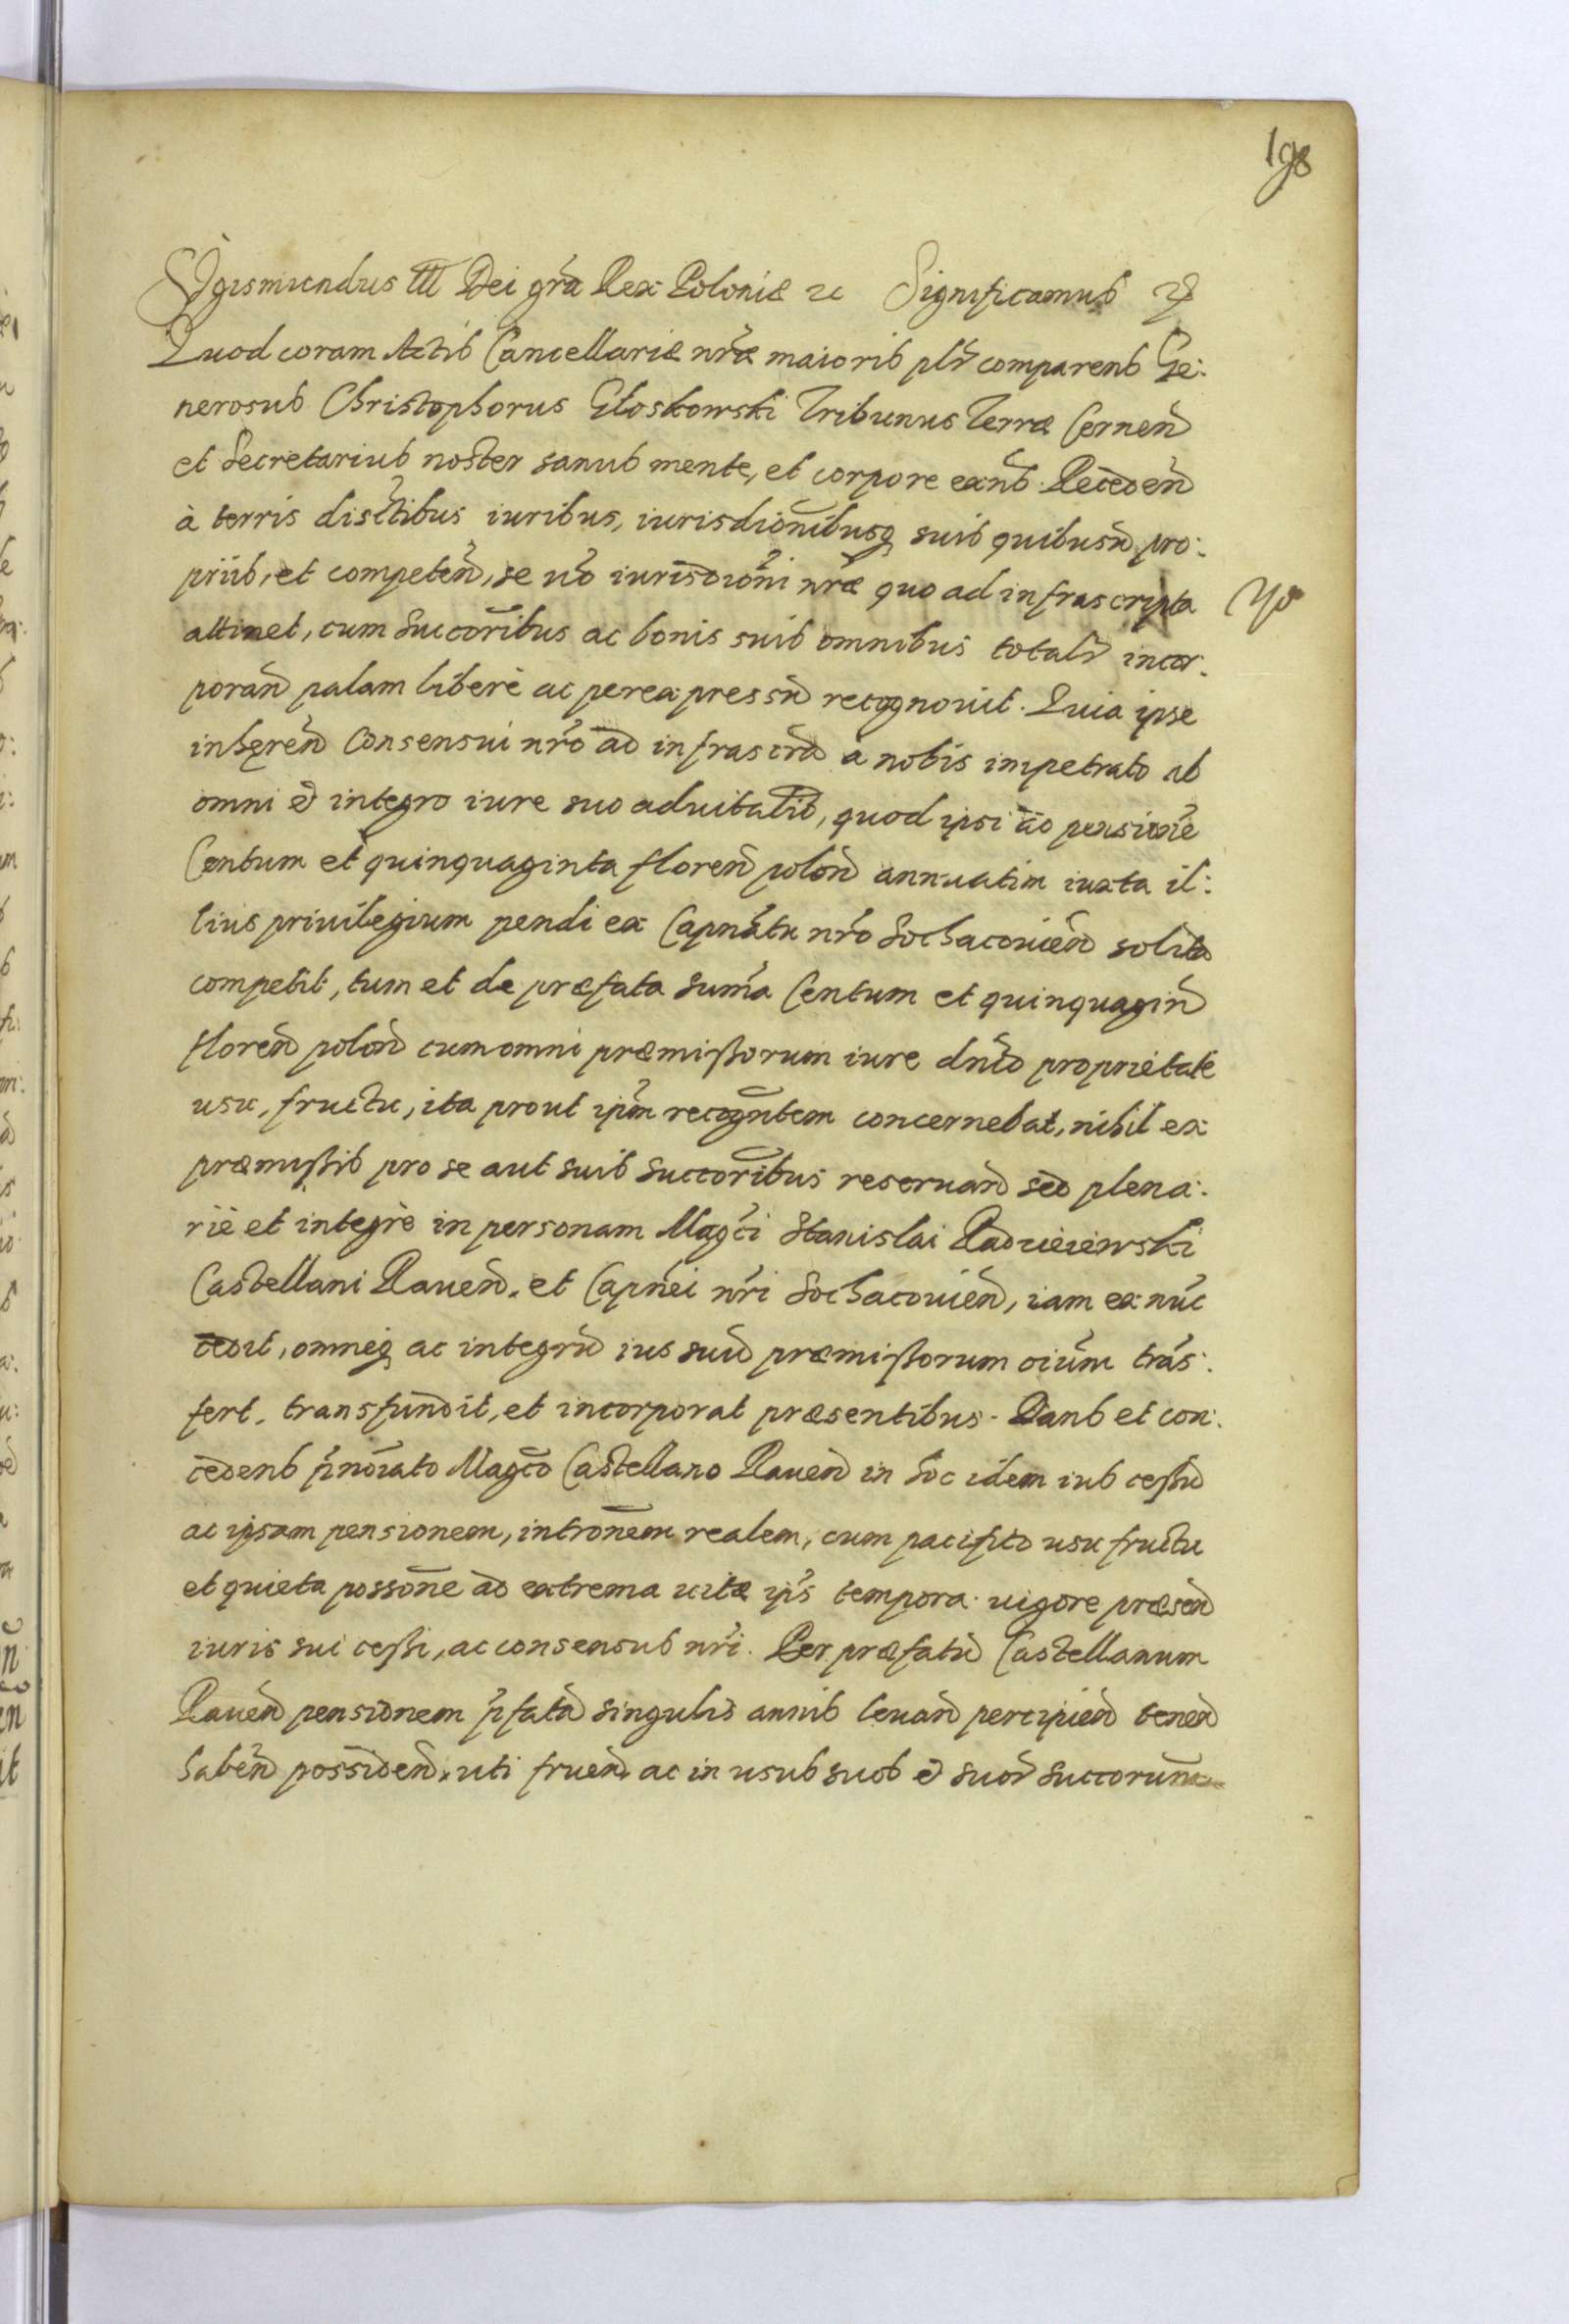 198
Sigismundus III Dei gr̃a Rex Poloniæ ꝛc Significamus ꝛc
Quod coram Actis Cancellariæ nr̃æ maioris plr̃ comparens Ge:
nerosus Christophorus Gloskowski Tribunus Terræ Cernen̄
et Secretarius noster sanus mente, et corpore exñs. Receden̄
à terris distr̃tibus iuribus, iurisdiõnibusq suis quibusuis pro:
priis, et competen̄, se uõ iurisdiõni nr̃æ quo ad infrascripta
attinet, cum Succorĩbus ac bonis suis omnibus totalr̃ incor:
poran̄ palam liberè ac per expressũ recognouit. Quia ipse
inhęren̄ Consensui nrõ ad infrascrã a nobis impetrato ab
omni et integro iure suo aduitalis, quod ipsi ad pensionẽ
Centum et quinquaginta floren̄ polon̄ annuatim iuxta il:
lius priuilegium pendi ex Capnẽatu nrõ Sochaczouien̄ solita
competit, tum et de præfata Sum̃a Centum et quinquagin̄
floren̄ polon̄ cum omni præmissorum iure dñio proprietate
usu, fructu, ita prout ipm̃ recogñtem concernebat, nihil ex
præmissis pro se aut suis Succorĩbus reseruan̄ sed plena:
riè et integrè in personam Magci Stanislai Radzieiewski
Castellani Rauen̄. et Capnei nrĩ Sochaczouien̄, iam ex nũc
cedit, omneq ac integrũ ius suũ præmissorum oiũm trãs:
fert, transfundit, et incorporat præsentibus. Dans et con:
cedens p̃noĩato Magco Castellano Rauen̄ in hoc idem ius cessũ
ac ipsam pensionem, introm̃nem realem, cum pacifico usu fructu
et quieta possoñe ad extrema uitæ ips̃ tempora uigore præsen̄
iuris sui cessi, ac consensus nrĩ. Per præfatũ Castellanum
Rauen̄ pensionem p̃fatã singulis annis leuan̄ percipien̄ tenen̄
haben̄ possiden̄. uti fruen̄ ac in usus suos et suor̃ Succorum̃